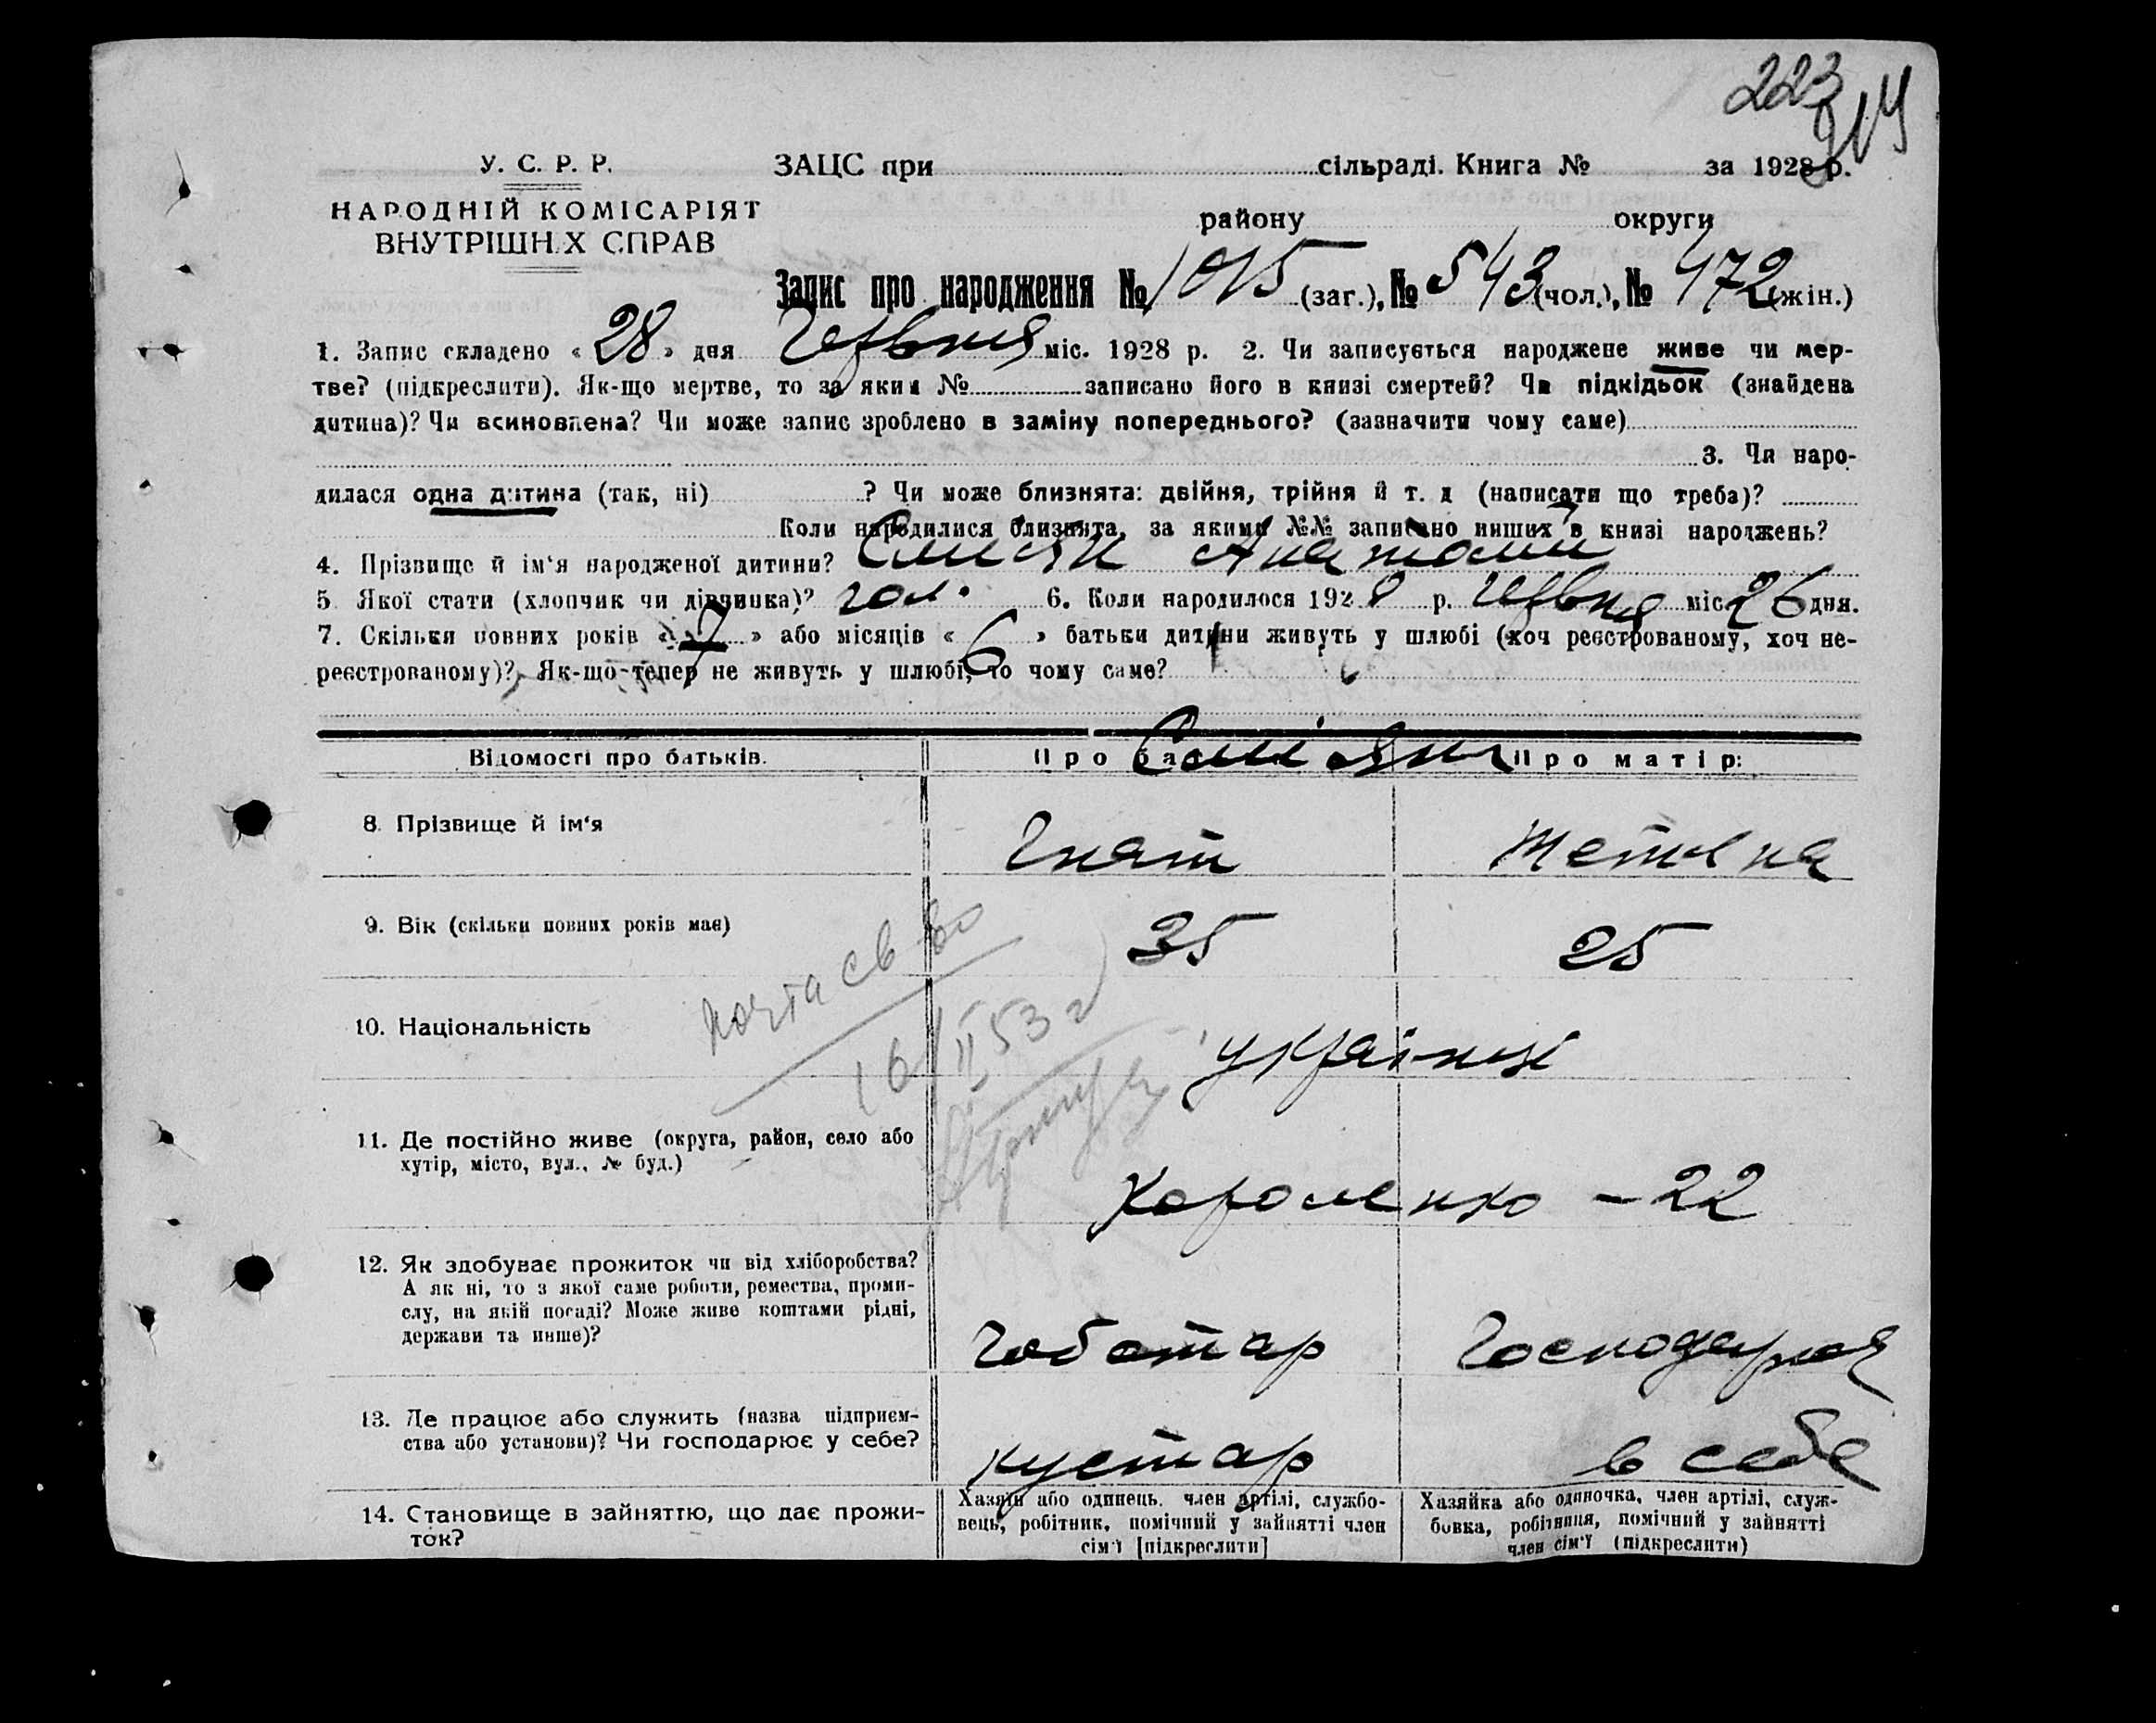 223
У. С. Р. Р. ЗАЦС при сільраді. Книга № за 1928 р.
НАРОДНІЙ КОМІСАРІЯТ
ВНУТРІШН.Х СПРАВ
району округи
Запис про народження № 1015 (заг.), № 543 (чол.), № 472 (жін.)
1. Запис складено « 28 » дня Червня міс. 1928 р. 2. Чи записується народжене живе чи мер-
тве? (підкреслити). Як-що мертве, то за яким № записано його в книзі смертей? Чи підкідьок (знайдена
дитина)? Чи всиновлена? Чи може запис зроблено в заміну попереднього? (зазначити чому саме)
3. Чи наро-
дилася одна дитина (так, ні) ? Чи може близнята: двійня, трійня й т. д (написати що треба)?
Коли народилися близнята, за якими №№ записано инших в книзі народжень?
4. Прізвище й ім'я народженої дитини? Анатолій
5. Якої стати (хлопчик чи дівчинка)? чол. 6. Коли народилось 1928 р. Червня міс 26 дня.
7. Скільки повних років « 7 » або місяців « 6 » батьки дитини живуть у шлюбі (хоч реєстрованому, хоч не-
реєстрованому)? Як-що тепер не живуть у шлюбі, то чому саме?
Відомості про батьків. Про Про матір:
8. Прізвище й ім'я Гнат Тетяна
9. Вік (скільки повних років має) 35 25
10. Національність українці
11. Де постійно живе (округа, район, село або
хутір, місто, вул., № буд.)
Короленко – 22
12. Як здобуває прожиток чи від хліборобства?
А як ні, то з якої саме роботи, ремества, проми-
слу, на якій посаді? Може живе коштами рідні,
держави та инше)?
Чоботар Господарка
13. Де працює або служить (назва підприєм-
ства або установи)? Чи господарює у себе?
кустар в себе
14. Становище в зайняттю, що дає прожи-
ток?
Хазяїн або одинець, член артілі, службо-
вець, робітник, помічний у зайнятті член
сім'ї [підкреслити]
Хазяйка або одиночка, член артілі, служ-
бовка, робітниця, помічний у зайнятті
член сім'ї (підкреслити)
16/II 53 г